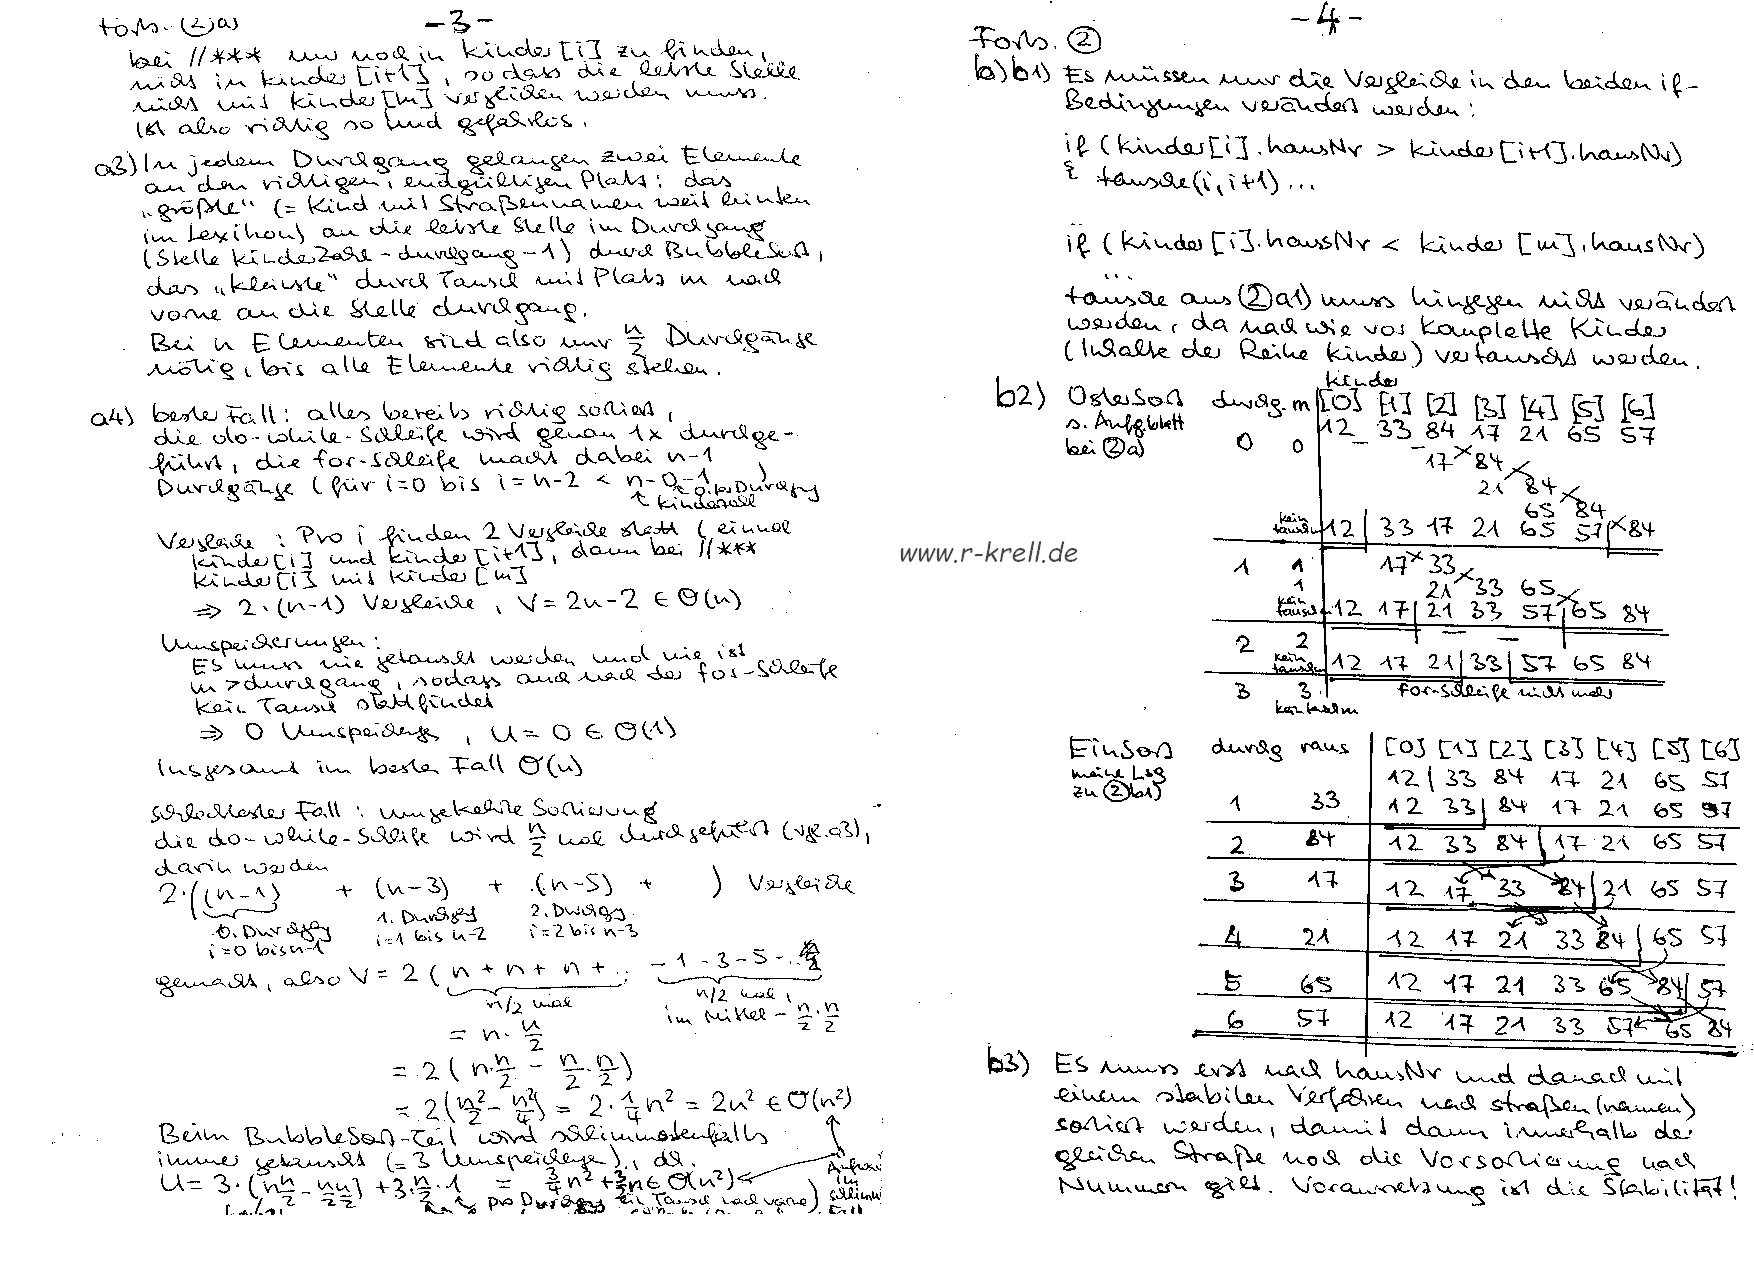 -3-
Forts. (2)a)
bei //*** nur noch in kinder[i] zu finden,
nicht in kinder[i+1], so dass die letzte Stelle
nicht mit kinder[m] verglichen werden muss.
Ist also richtig so und gefahrlos.
a3) In jedem Durchgang gelangen zwei Elemente
an den richtigen, endgültigen Platz: das
„größte" (= Kind mit Straßennamen weit hinten
im Lexikon) an die letzte Stelle im Durchgang
(Stelle kinderZahl-durchgang-1) durch BubbleSort,
das „kleinste" durch Tausch mit Platz m nach
vorne an die Stelle durchgang.
Bei n Elementen sind also nur n/2 Durchgänge
nötig, bis alle Elemente richtig stehen.
a4) bester Fall: alles bereits richtig sortiert,
die do-while-Schleife wird genau 1x durchge-
führt, die for-Schleife macht dabei n-1
Durchgänge (für i=0 bis i=n-2 < n-0-1 )
↑ kinderzahl ↑ 0.ter Durchgg
Vergleiche: Pro i finden 2 Vergleiche statt (einmal
kinder[i] und kinder[i+1], dann bei //***
kinder[i] mit kinder[m]
⇒ 2·(n-1) Vergleiche, V=2n-2 ∈ O(n)
Umspeicherungen:
Es muss nie getauscht werden und nie ist
m>durchgang, sodass auch nach der for-Schleife
kein Tausch stattfindet
⇒ 0 Umspeicherg, U=0 ∈ O(1)
Insgesamt im besten Fall O(n)
schlechtester Fall: umgekehrte Sortierung
die do-while-Schleife wird n/2 mal durchgeführt (vgl. a3),
darin werden
2·((n-1) + (n-3) + (n-5) + ) Vergleiche
0. Durchgg 1. Durchgg 2. Durchgg
i=0 bis n-1 i=1 bis n-2 i=2 bis n-3
gemacht, also V = 2(n+n+n+.. -1-3-5-..
n/2 mal n/2 mal,
im Mittel - n/2·n/2
= n·n/2
= 2(n·n/2 - n/2·n/2)
= 2(n²/2 - n²/4) = 2·1/4n² = 2n² ∈ O(n²)
Beim BubbleSort-Teil wird schlimmstenfalls
immer getauscht (= 3 Umspeichergen), d.h.
U = 3·(n n/2 - n/2 n/2) + 3·n/2·1 = 3/4n² + 3/2n ∈ O(n²)
pro Durchgg ein Tausch nach vorne)
-4-
Forts. (2)
b) b1) Es müssen nur die Vergleiche in den beiden if-
Bedingungen verändert werden:
if (kinder[i].hausNr > kinder[i+1].hausNr)
{ tausche(i,i+1)...
if (kinder[i].hausNr < kinder[m].hausNr)
...
tausche aus (2)a1) muss hingegen nicht verändert
werden, da nach wie vor komplette Kinder
(Inhalte der Reihe kinder) vertauscht werden.
kinder
b2) OsterSort durchg. m [0] [1] [2] [3] [4] [5] [6]
s. Aufgblatt 12 33 84 17 21 65 57
bei (2)a) 0 0
17 84
21 84
65 84
kein tausch 12 33 17 21 65 57 84
1 1 17 33
1 21 33 65
kein tausch 12 17 21 33 57 65 84
2 2
kein tauschen 12 17 21 33 57 65 84
3 3 for-Schleife nicht mehr
www.r-krell.de
EinSort durchg raus [0] [1] [2] [3] [4] [5] [6]
meine Lsg 12 33 84 17 21 65 57
zu (2)b1)
1 33 12 33 84 17 21 65 57
2 84 12 33 84 17 21 65 57
3 17 12 17 33 84 21 65 57
4 21 12 17 21 33 84 65 57
5 65 12 17 21 33 65 84 57
6 57 12 17 21 33 57 65 84
b3) Es muss erst nach hausNr und danach mit
einem stabilen Verfahren nach straßen(namen)
sortiert werden, damit dann innerhalb der
gleichen Straße noch die Vorsortierung nach
Nummern gilt. Voraussetzung ist die Stabilität!